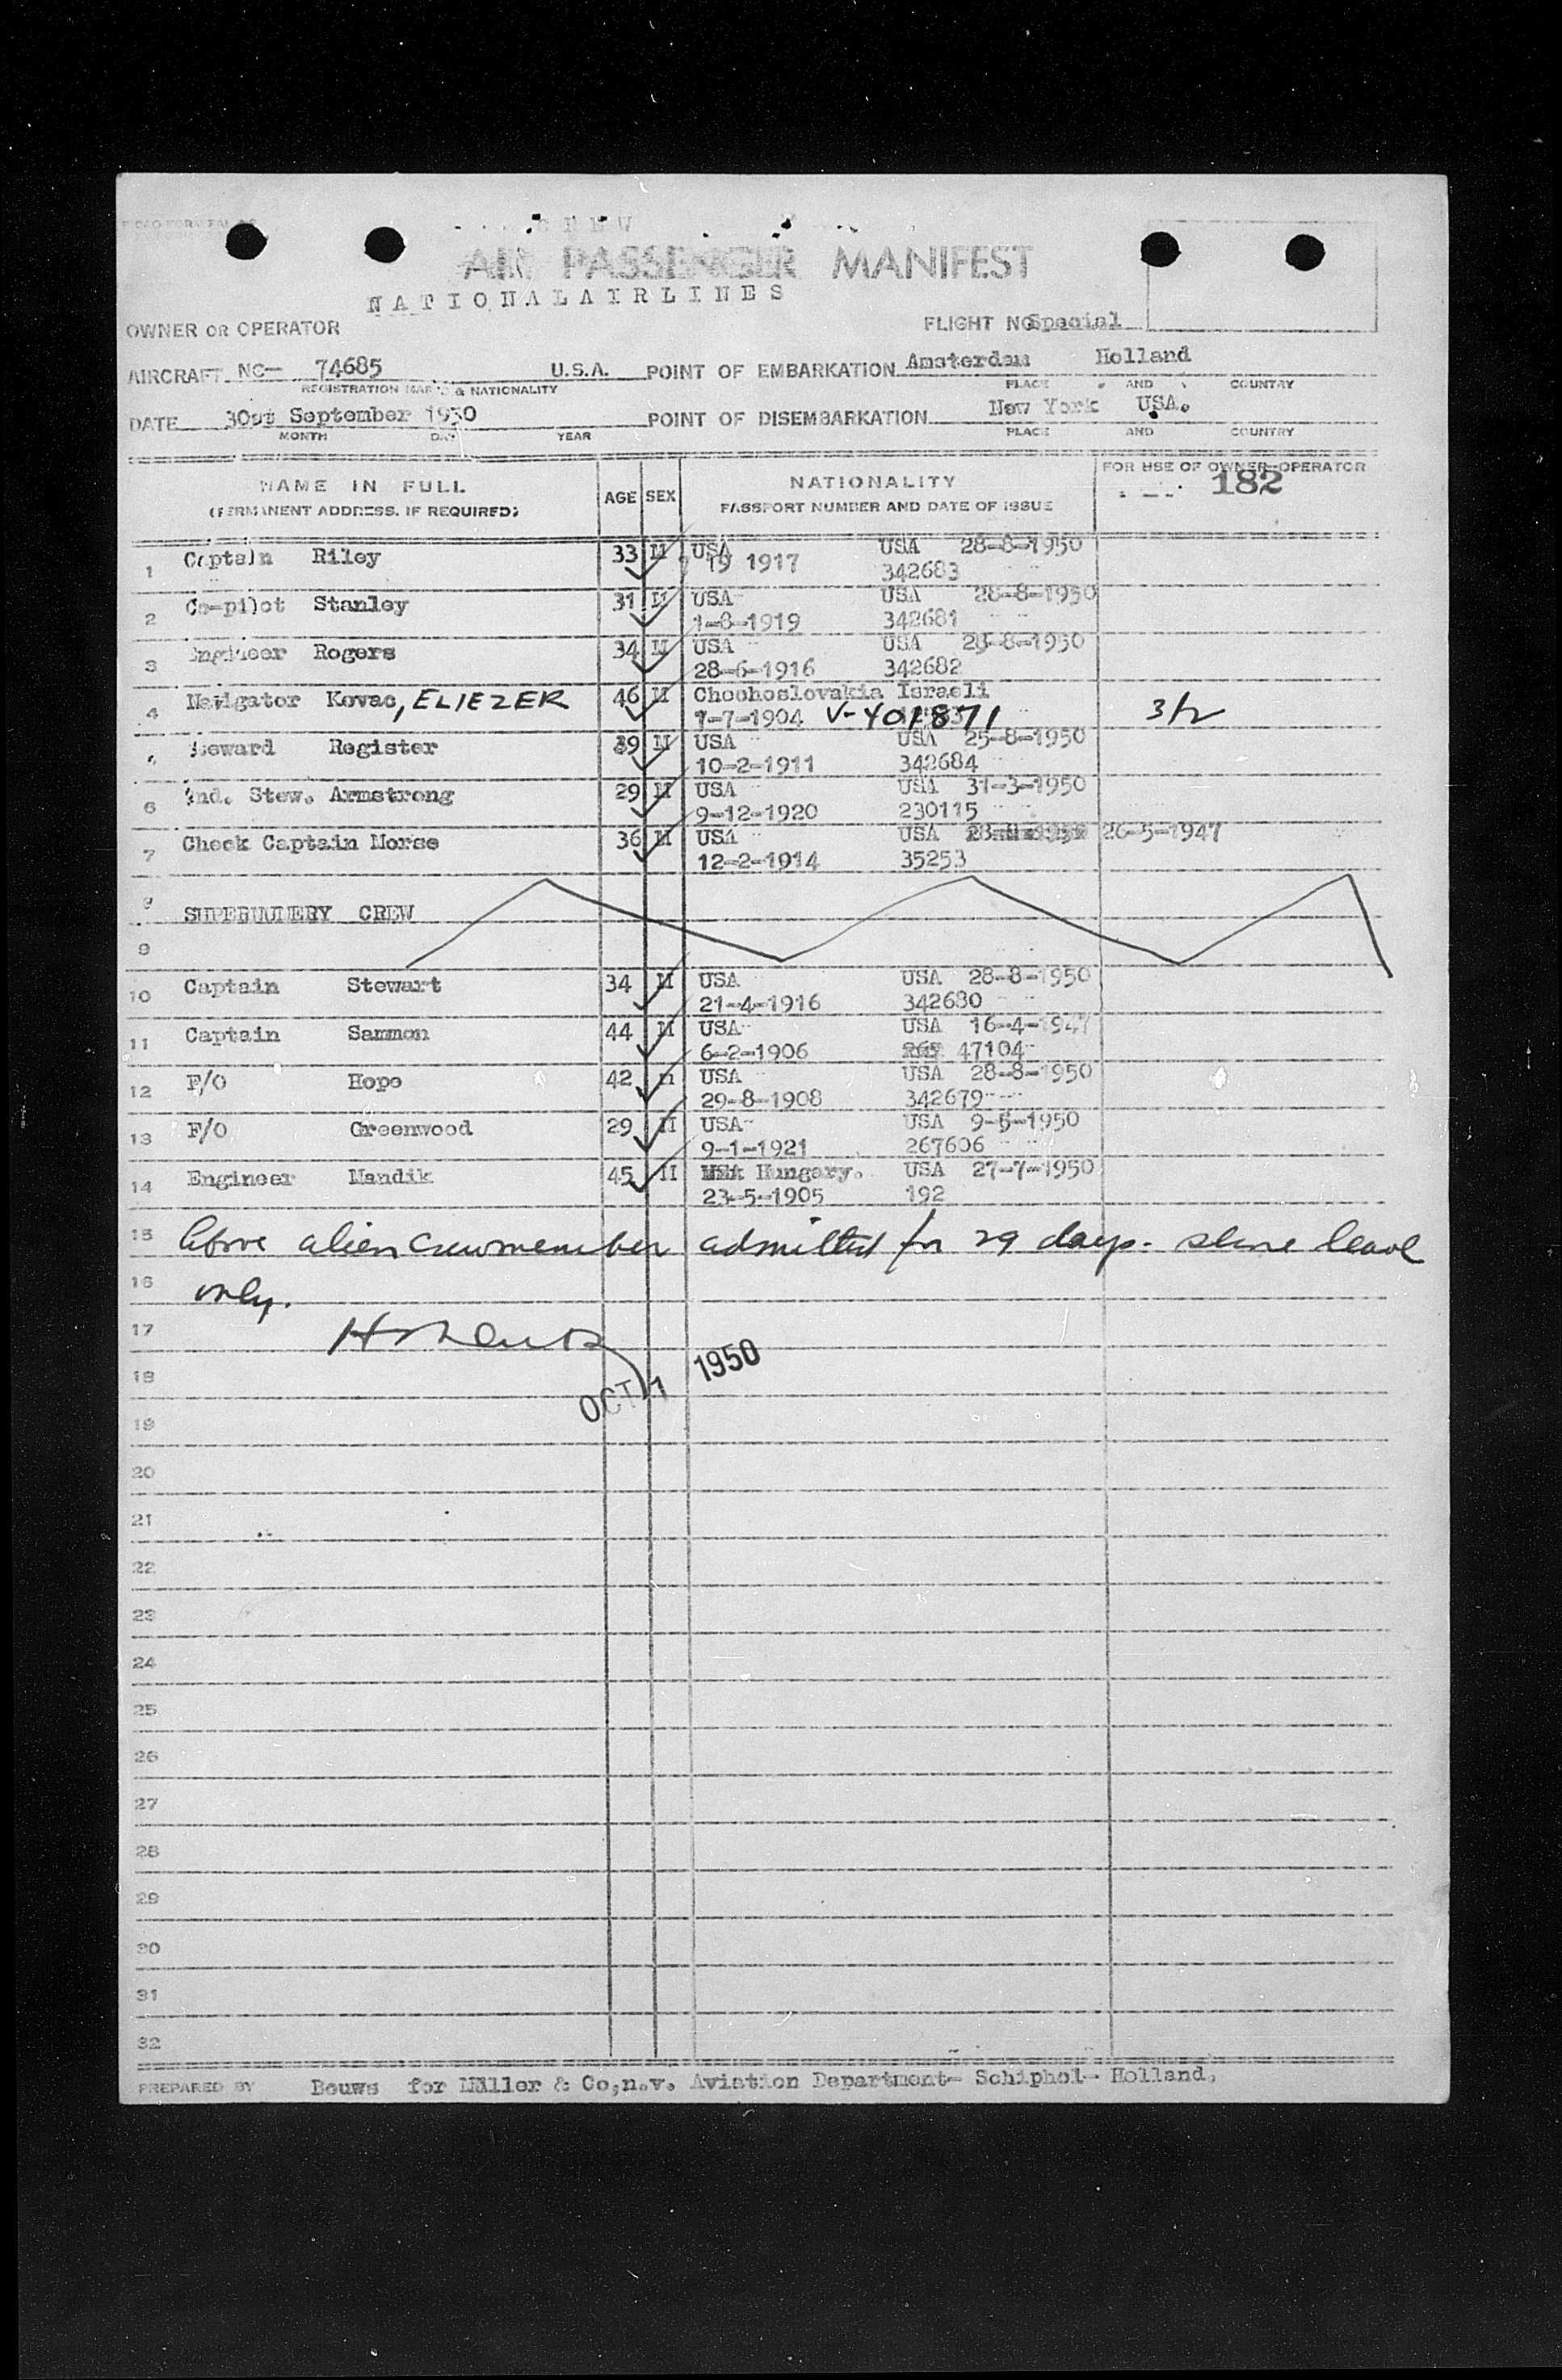 CREW
AIR PASSENGER MANIFEST
NATIONAL AIRLINES
OWNER OR OPERATOR
FLIGHT NO Special
AIRCRAFT NC— 74685 U.S.A. POINT OF EMBARKATION Amsterdam Holland
REGISTRATION MARKS & NATIONALITY PLACE AND COUNTRY
DATE 30st September 1950 POINT OF DISEMBARKATION New York USA.
MONTH DAY YEAR PLACE AND COUNTRY
NAME IN FULL AGE SEX NATIONALITY FOR USE OF OWNER-OPERATOR
(PERMANENT ADDRESS, IF REQUIRED) PASSPORT NUMBER AND DATE OF ISSUE 182
1 Captain Riley 33 M USA USA 28-8-1950
19 1917 342683
2 Co-pilot Stanley 31 M USA USA 28-8-1950
1-8-1919 342681
3 Engineer Rogers 34 M USA USA 28-8-1950
28-6-1916 342682
4 Navigator Kovac, ELIEZER 46 M Chochoslovakia Israeli
1-7-1904 V-401871 3/2
Steward Register 39 M USA USA 25-8-1950
10-2-1911 342684
6 2nd. Stew. Armstrong 29 M USA USA 31-3-1950
9-12-1920 230115
7 Check Captain Morse 36 M USA USA 26-5-1947
12-2-1914 35253
SUPERNUMERY CREW
9
10 Captain Stewart 34 M USA USA 28-8-1950
21-4-1916 342680
11 Captain Sammon 44 M USA USA 16-4-1947
6-2-1906 47104
12 F/O Hope 42 M USA USA 28-8-1950
29-8-1908 342679
13 F/O Greenwood 29 M USA USA 9-5-1950
9-1-1921 267606
14 Engineer Mandik 45 M Hungary. USA 27-7-1950
23-5-1905 192
15 Above alien crewmember admitted for 29 days - shore leave
16 only.
17
18 OCT 1 1950
19
20
21
22
23
24
25
26
27
28
29
30
31
32
PREPARED BY Bouws for Müller & Co,n.v. Aviation Department- Schiphol- Holland.